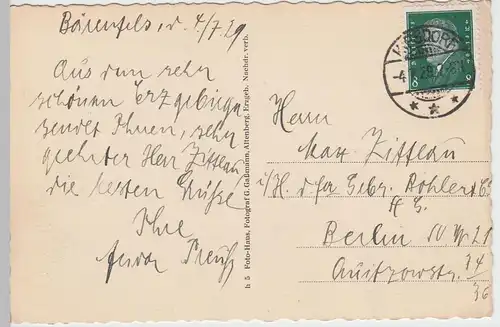 Bärenfels, d. 4/7.29
Aus dem sehr
schönen Erzgebirge
sendet Ihnen, sehr
geehrter Herr Zittlau,
die besten Grüße
Ihr
h 5 Foto-Haus, Fotograf G. Gaßmann, Altenberg, Erzgeb. Nachdr. verb.
8
KIPSDORF
Herrn
Max Zittlau
i/H. d. fa. Gebr. Köhler & Co
A G.
Berlin NW 21
Quitzowstr. 34/36